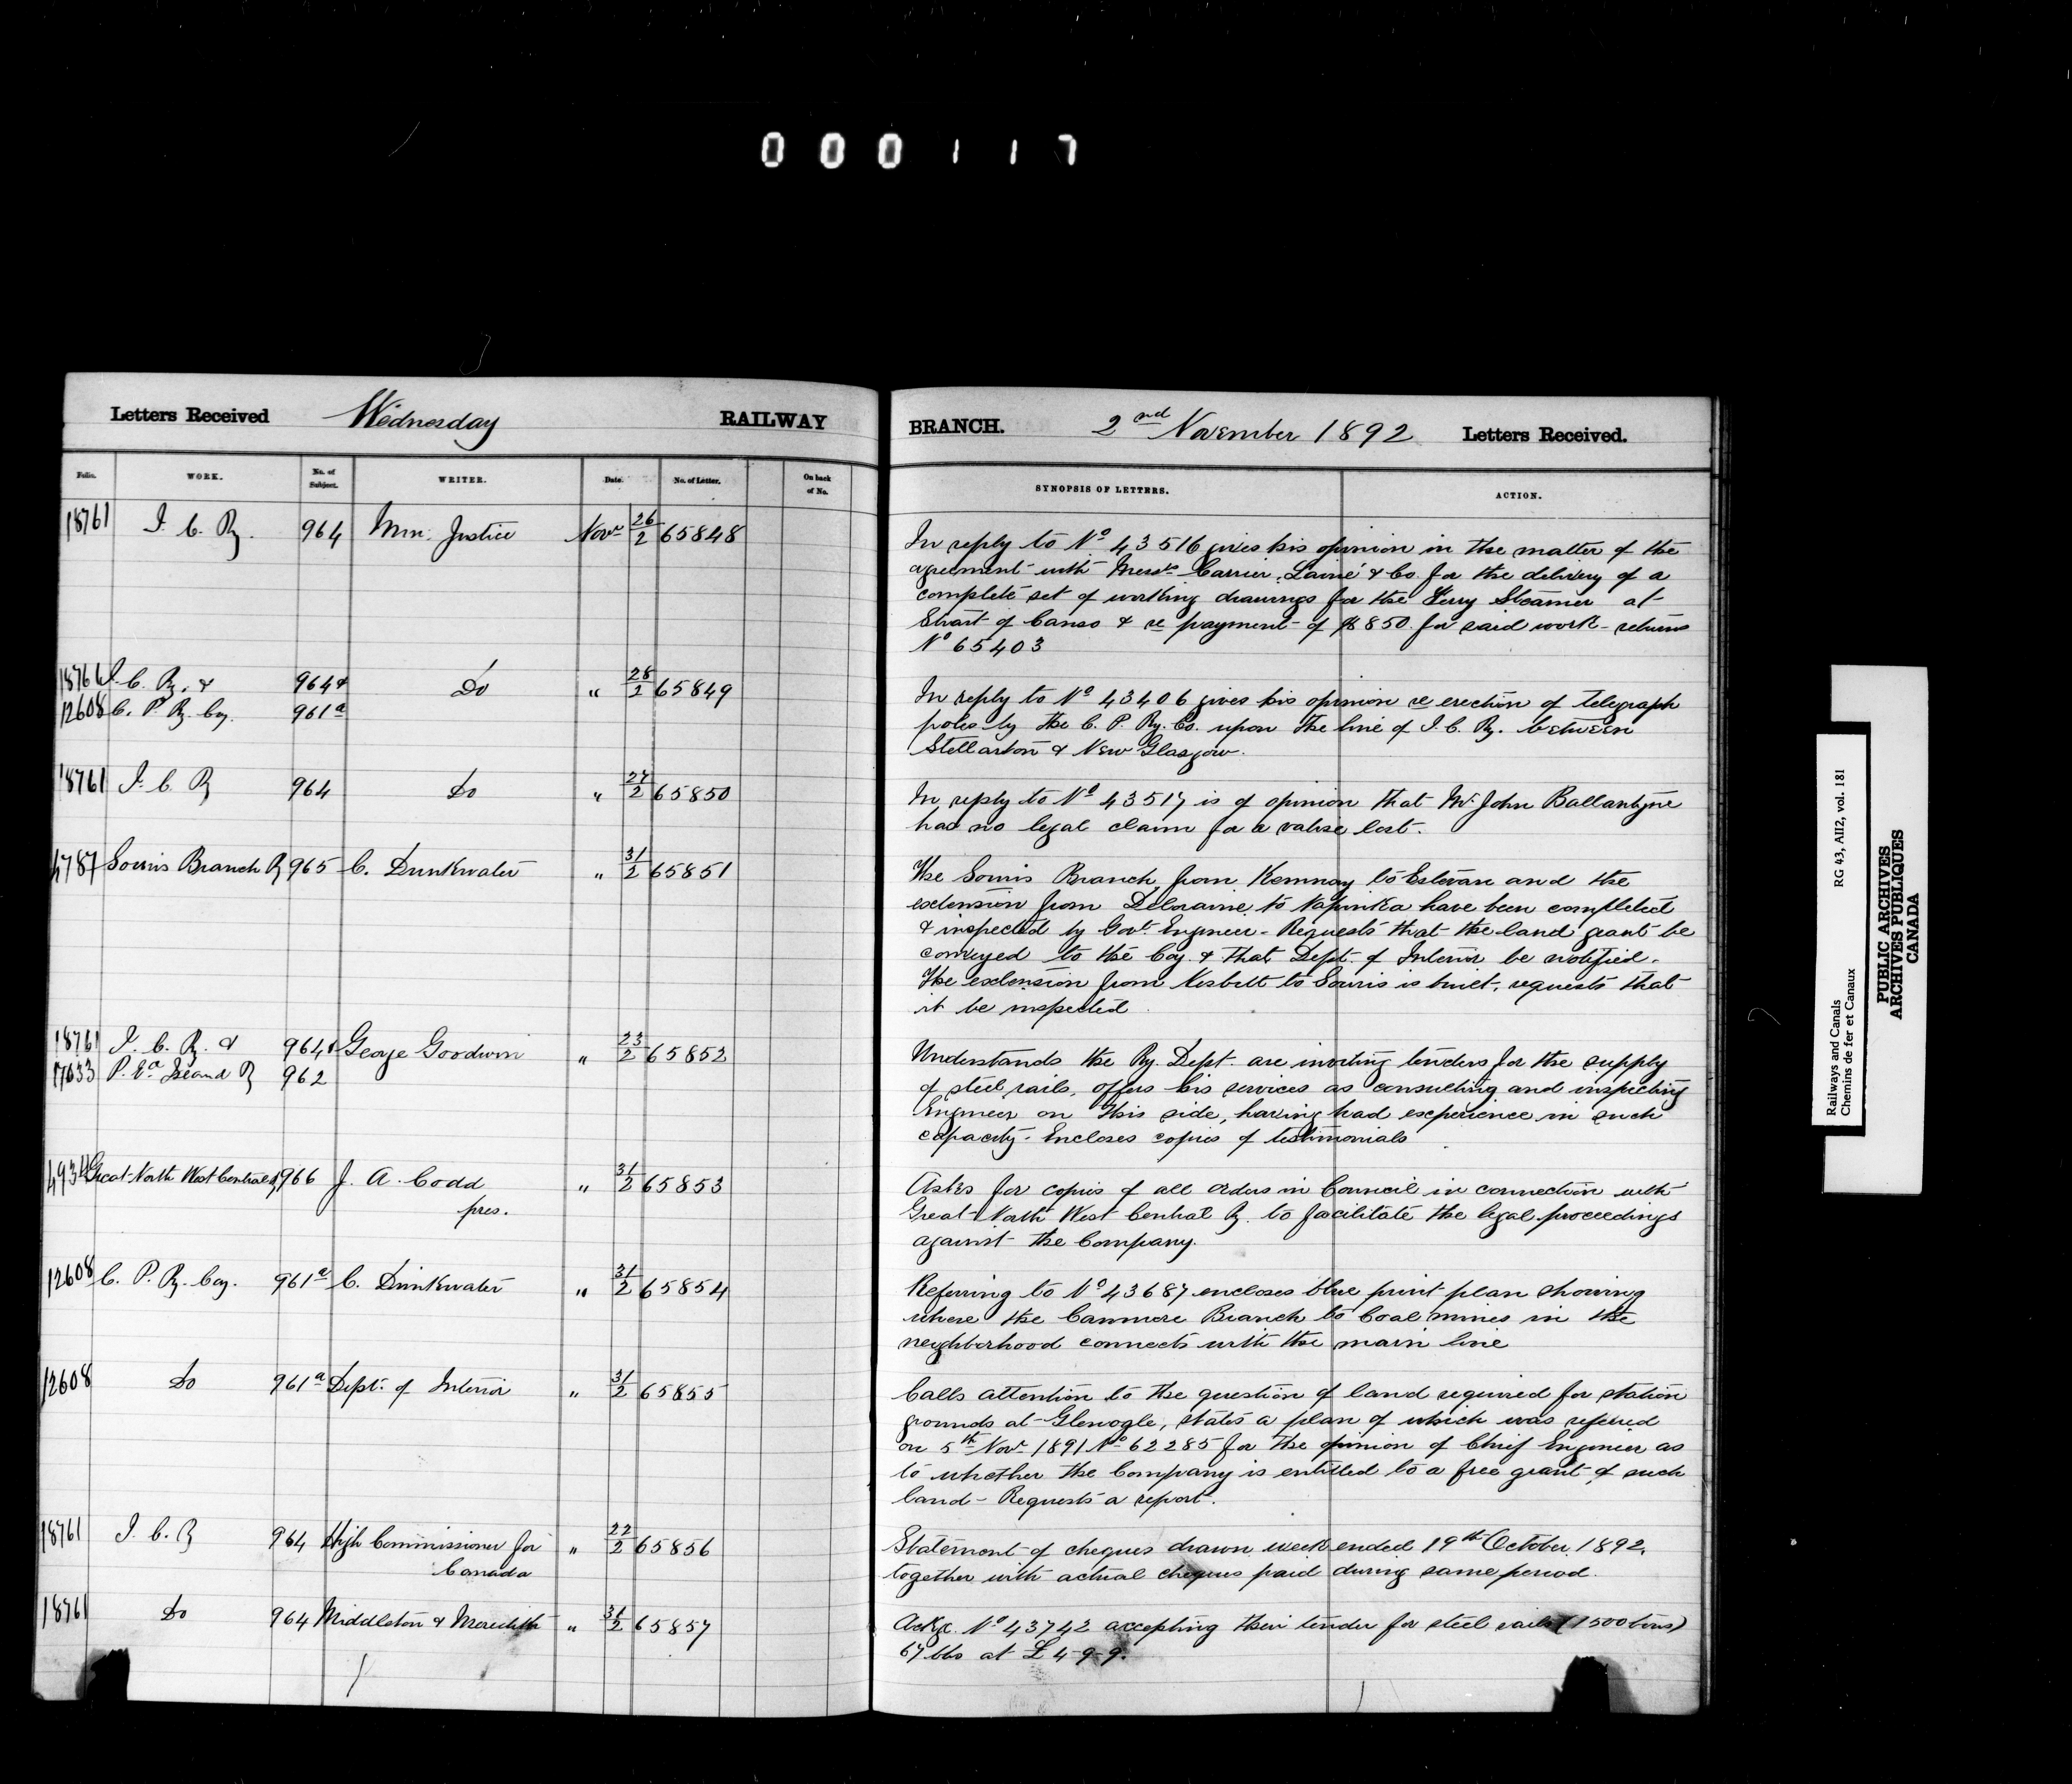 000117
Letters Received Wednesday RAILWAY
Folio. WORK. No. of Subject. WRITER. Date. No. of Letter. On back of No.
18761 I. C. Ry. 964 Min: Justice Novr 26/2 65848
18761 I. C. Ry. & 964 & Do " 28/2 65849
12608 C. P. Ry. Coy. 961a
18761 I. C. Ry 964 Do " 27/2 65850
4787 Souris Branch Ry 965 C. Drinkwater " 31/2 65851
18761 I. C. Ry. & 964 & George Goodwin " 23/2 65852
17033 P. Ed. Island Ry 962
4934 Great North West Central Ry 966 J. A. Codd " 31/2 65853
pres.
12608 C. P. Ry. Coy. 961a C. Drinkwater " 31/2 65854
12608 Do 961a Dept. of Interior " 31/2 65855
18761 I. C. Ry 964 High Commissioner for " 22/2 65856
Canada
18761 Do 964 Middleton & Meredith " 31/2 65857
BRANCH. 2nd November 1892 Letters Received.
SYNOPSIS OF LETTERS. ACTION.
In reply to No 43516 gives his opinion in the matter of the
agreement with Messrs Carrier, Lainé & Co. for the delivery of a
complete set of working drawings for the Ferry Steamer at
Strait of Canso & re payment of $850. for said work - returns
No 65403
In reply to No 43406 gives his opinion re erection of telegraph
poles by the C. P. Ry. Co. upon the line of I. C. Ry. between
Stellarton & New Glasgow.
In reply to No 43517 is of opinion that Mr. John Ballantyne
has no legal claim for a valise lost.
The Souris Branch, from Kemnay to Estevan and the
extension from Deloraine to Napinka have been completed
& inspected by Govt. Engineer - Requests that the land grant be
conveyed to the Coy. & that Dept. of Interior be notified.
The extension from Nesbitt to Souris is built, requests that
it be inspected.
Understands the Ry. Dept. are inviting tenders for the supply
of steel rails, offers his services as consulting and inspecting
Engineer on this side, having had experience in such
capacity. Encloses copies of testimonials
Asks for copies of all orders in Council in connection with
Great North West Central Ry. to facilitate the legal proceedings
against the Company.
Referring to No 43687 encloses blue print plan showing
where the Canmore Branch to Coal mines in the
neighborhood connects with the main line
Calls attention to the question of land required for station
grounds at Glenogle, states a plan of which was referred
on 5th Novr 1891 No 62285 for the opinion of Chief Engineer as
to whether the Company is entitled to a free grant of such
land - Requests a report.
Statement of cheques drawn week ended 19th October 1892,
together with actual cheques paid during same period.
Ackge. No 43742 accepting their tender for steel rails (1500 tons)
67 lbs at £4-9-9.
Railways and Canals RG 43, AII2, vol. 181
Chemins de fer et Canaux
PUBLIC ARCHIVES
ARCHIVES PUBLIQUES
CANADA